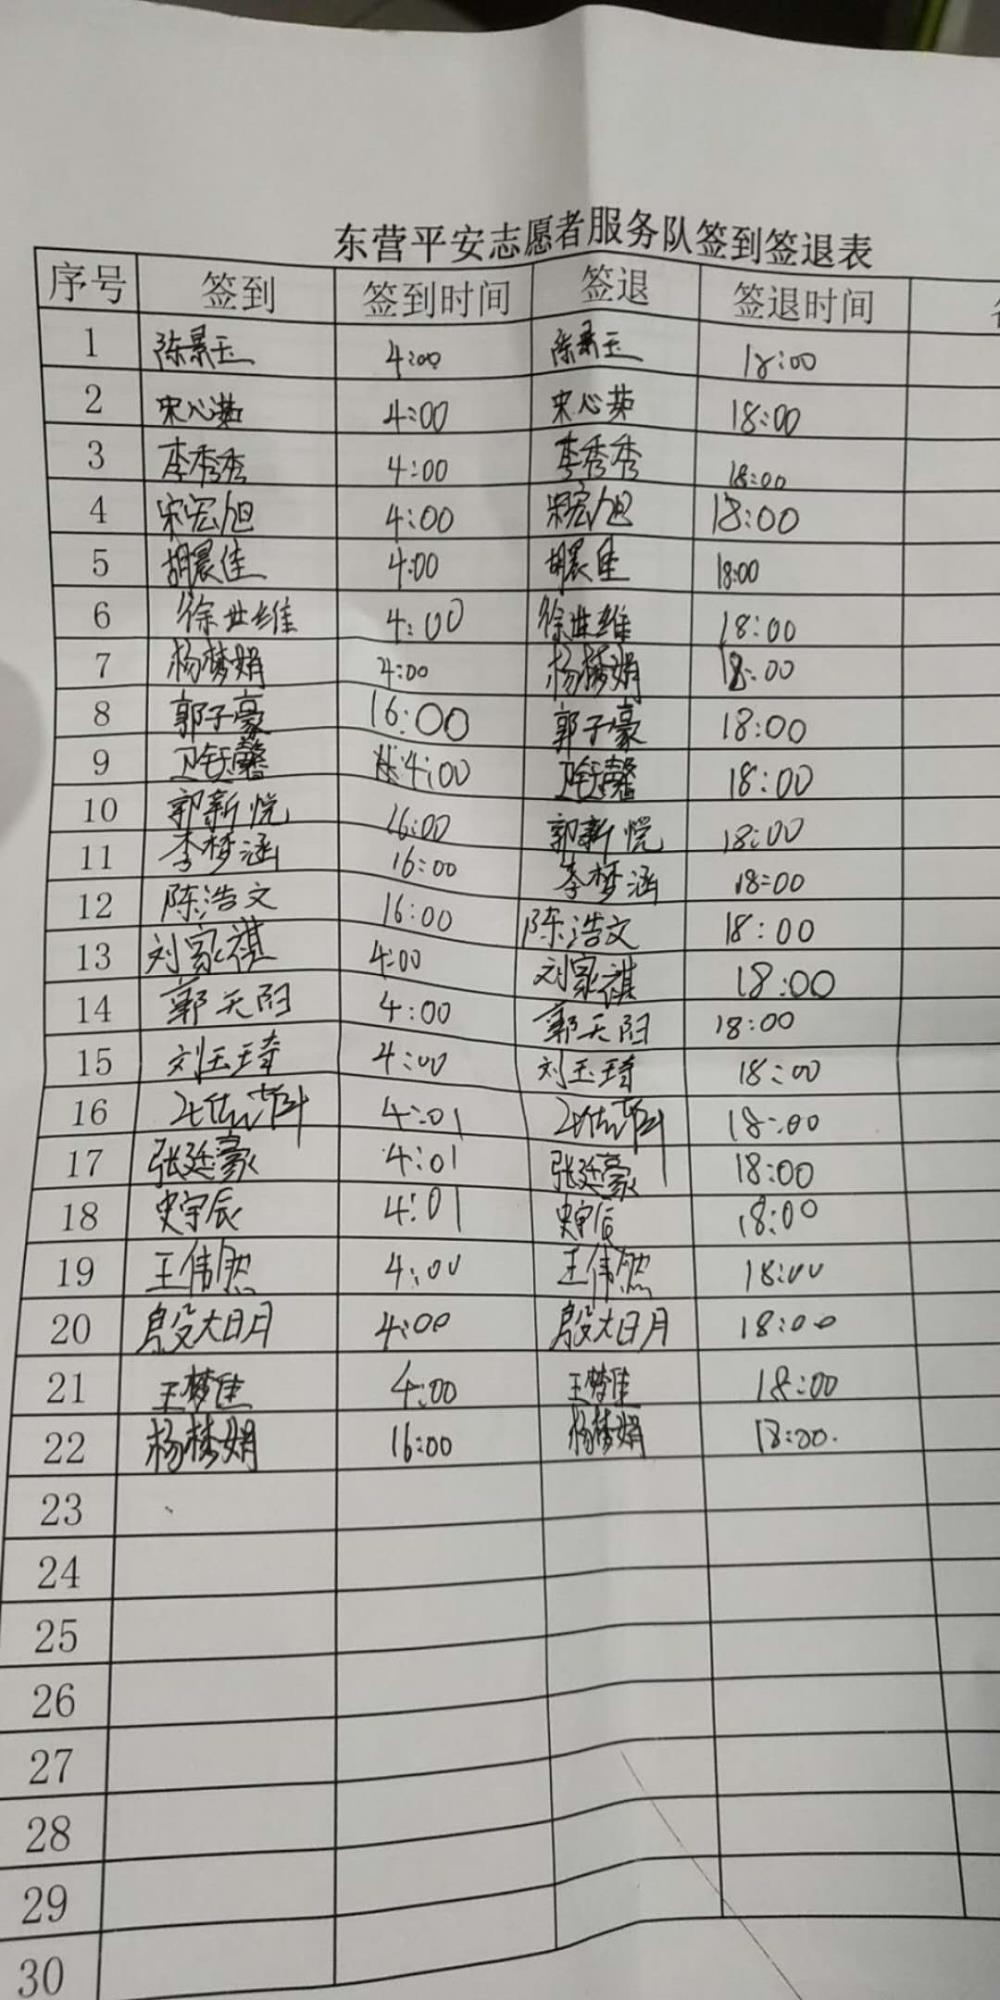 东营平安志愿者服务队签到签退表
序号 签到 签到时间 签退 签退时间
1 陈景玉 4:00 陈景玉 18:00
2 宋心茹 4:00 宋心茹 18:00
3 李秀秀 4:00 李秀秀 18:00
4 宋宏旭 4:00 宋宏旭 18:00
5 胡晨佳 4:00 胡晨佳 18:00
6 徐世维 4:00 徐世维 18:00
7 杨梦娟 4:00 杨梦娟 18:00
8 郭子豪 16:00 郭子豪 18:00
9 卫钰馨 4:00 卫钰馨 18:00
10 郭新悦 16:00 郭新悦 18:00
11 李梦涵 16:00 李梦涵 18:00
12 陈浩文 16:00 陈浩文 18:00
13 刘家祺 4:00 刘家祺 18:00
14 郭天阳 4:00 郭天阳 18:00
15 刘玉琦 4:00 刘玉琦 18:00
16 4:01 18:00
17 张廷豪 4:01 张廷豪 18:00
18 史宇辰 4:01 史宇辰 18:00
19 王伟然 4:00 王伟然 18:00
20 殷大明 4:00 殷大明 18:00
21 王梦佳 4:00 王梦佳 18:00
22 杨梦娟 16:00 杨梦娟 18:00.
23
24
25
26
27
28
29
30